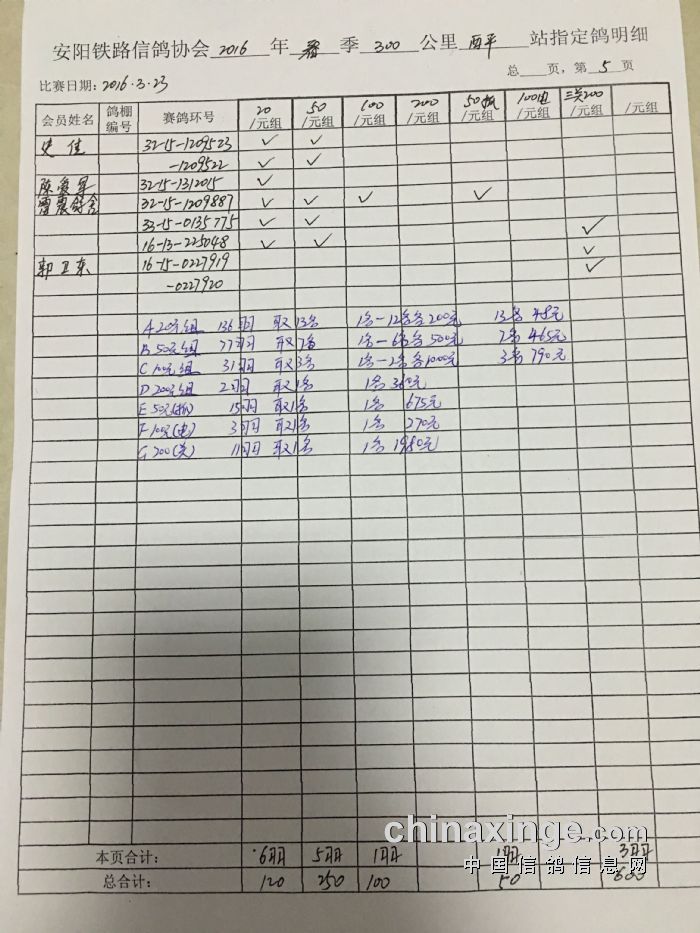 安阳铁路信鸽协会 2016 年 春 季 300 公里 西平 站指定鸽明细
比赛日期：2016.3.23 总 页，第 5 页
会员姓名 鸽棚编号 赛鸽环号 20/元组 50/元组 100/元组 200/元组 50/元组 100/元组 三关200/元组 /元组
史佳 32-15-1209523 ✓ ✓
-1209522 ✓ ✓
陈爱军 32-15-1312015 ✓
雷震鸽舍 32-15-1209887 ✓ ✓ ✓ ✓
32-15-0135775 ✓ ✓
16-13-225048 ✓ ✓ ✓
郭卫东 16-15-0227919 ✓
-0227920 ✓
A 20元组 136羽 取13名 1名-12名各200元 13名 48元
B 50元组 77羽 取7名 1名-6名各500元 7名 465元
C 100元组 31羽 取3名 1名-2名各1000元 3名 790元
D 200元组 2羽 取1名 1名 360元
E 50元 15羽 取1名 1名 675元
F 100元 3羽 取1名 1名 270元
G 200(关) 11羽 取1名 1名 1980元
本页合计： 6羽 5羽 1羽 1羽 3羽
总合计： 120 250 100 50 600
chinaxinge.com
中国信鸽信息网